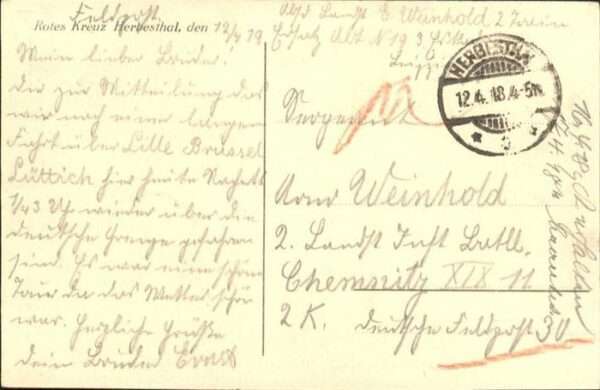 Feldpost
Rotes Kreuz Herbesthal, den 12/4 19
Mein lieber Bruder!
Dir zur Mitteilung das
wir nach einer langen
Fahrt über Lille Brüssel
Lüttich hier heute Nachts
1/43 Uhr wieder über die
deutsche Grenze gefahren
sind. Es war eine schöne
Tour da das Wetter schön
war. Herzliche Grüße
dein Bruder Ernst
Abs Landst E Weinhold 2
Ersatz Abt N 19 3
HERBESTHAL
12.4.18.4-5N
Sergeant
Weinhold
2. Landst Inft Batll.
Chemnitz XIX 11
2 K. deutsche Feldpost 30